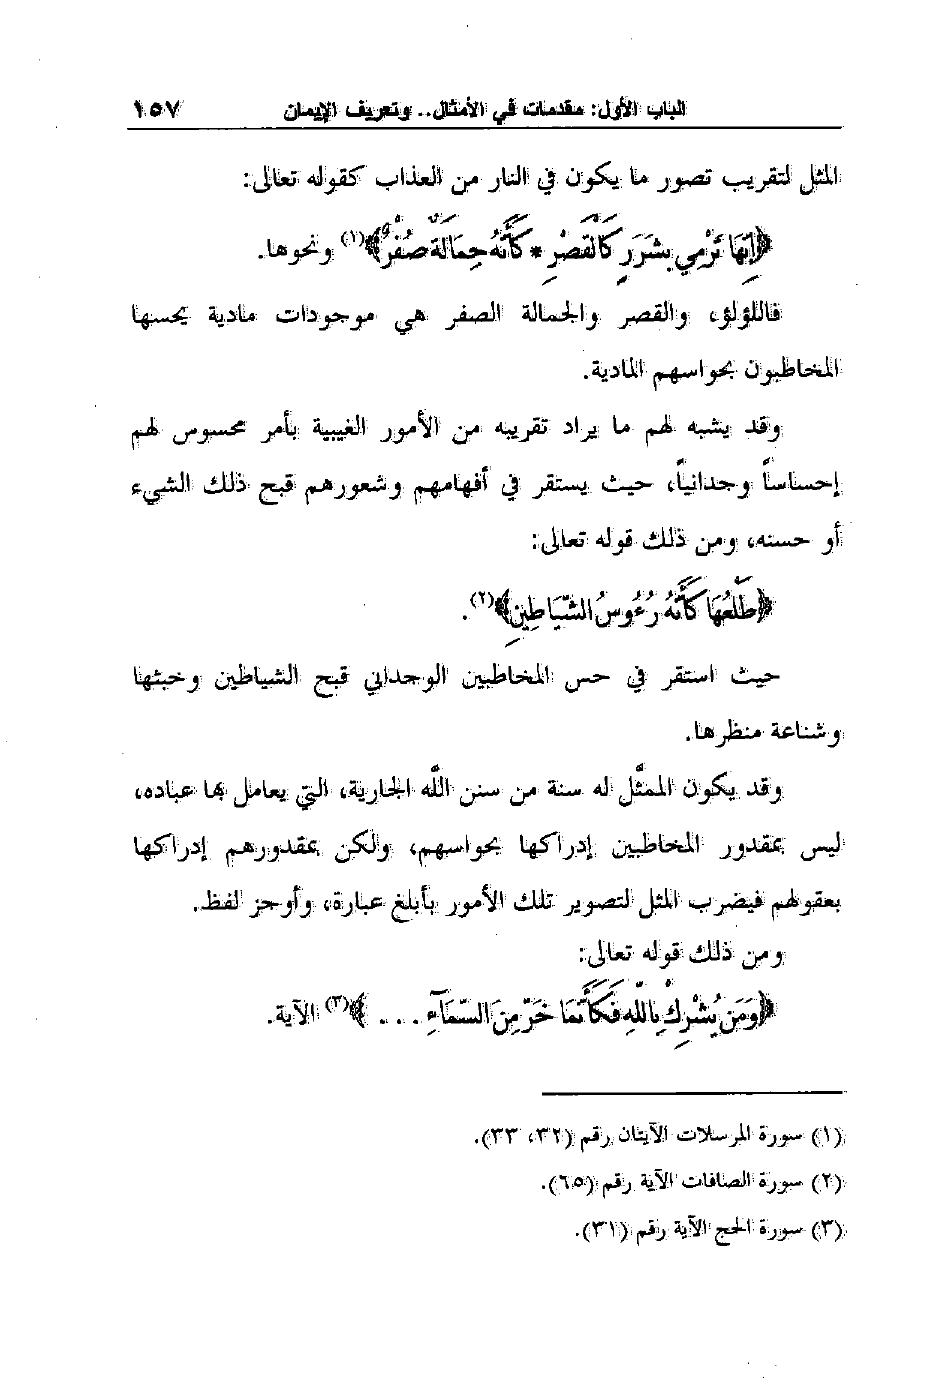 الباب الأول: مقدمات في الأمثال.. وتعريف الإيمان ١٥٧
المثل لتقريب تصور ما يكون في النار من العذاب كقوله تعالى:
﴿إِنَّهَا تَرْمِي بِشَرَرٍ كَالْقَصْرِ * كَأَنَّهُ جِمَالَةٌ صُفْرٌ﴾(١) ونحوها.
فاللؤلؤ، والقصر والجمالة الصفر هي موجودات مادية يحسها
المخاطبون بحواسهم المادية.
وقد يشبه لهم ما يراد تقريبه من الأمور الغيبية بأمر محسوس لهم
إحساساً وجدانياً، حيث يستقر في أفهامهم وشعورهم قبح ذلك الشيء
أو حسنه، ومن ذلك قوله تعالى:
﴿طَلْعُهَا كَأَنَّهُ رُءُوسُ الشَّيَاطِينِ﴾(٢).
حيث استقر في حس المخاطبين الوجداني قبح الشياطين وخبثها
وشناعة منظرها.
وقد يكون الممثَّل له سنة من سنن اللَّه الجارية، التي يعامل بها عباده،
ليس بمقدور المخاطبين إدراكها بحواسهم، ولكن بمقدورهم إدراكها
بعقولهم فيضرب المثل لتصوير تلك الأمور بأبلغ عبارة، وأوجز لفظ.
ومن ذلك قوله تعالى:
﴿وَمَن يُشْرِكْ بِاللَّهِ فَكَأَنَّمَا خَرَّ مِنَ السَّمَآءِ . . . ﴾(٣) الآية.
(١) سورة المرسلات الآيتان رقم (٣٢، ٣٣).
(٢) سورة الصافات الآية رقم (٦٥).
(٣) سورة الحج الآية رقم (٣١).